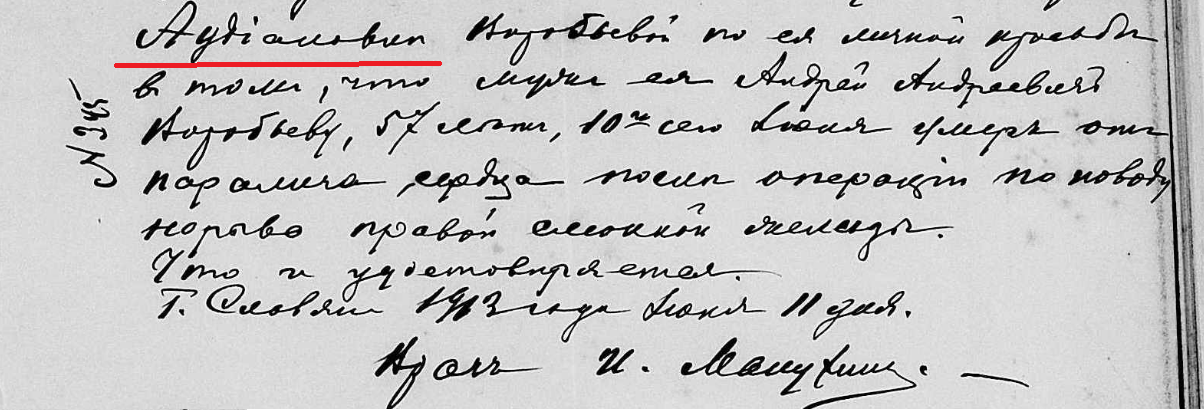 Аудіановнѣ Воробьевой по ея личной просьбѣ
въ томъ, что мужъ ея Андрей Андреевичъ
Воробьевъ, 57 лѣтъ, 10го сего Іюня умеръ отъ
паралича сердца послѣ операціи по поводу
нарыва правой слюнной железы.
Что и удостовѣряется.
Г. 1913 года Іюня 11 дня.
Врачъ И. Манухинъ.
N 345